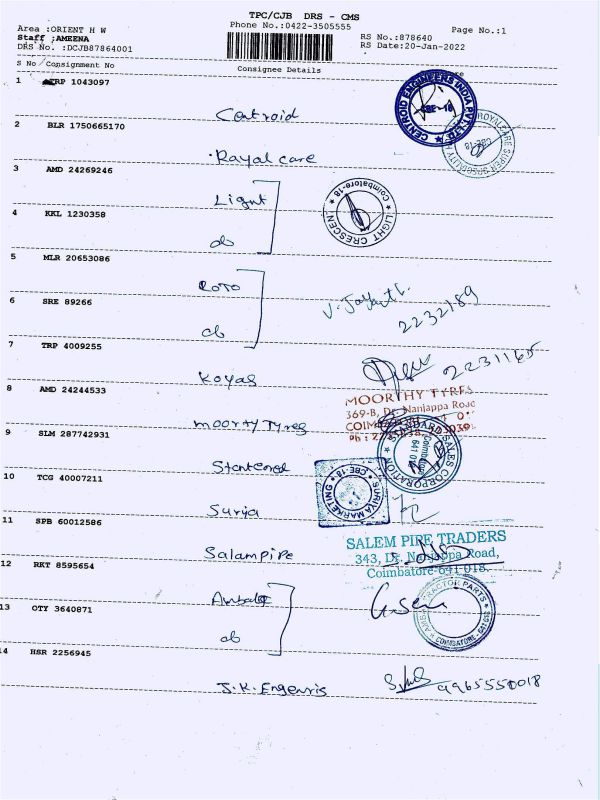 TPC/CJB DRS - CMS
Phone No.:0422-3505555
Page No.:1
Area :ORIENT H W
Staff ;AMEENA
DRS No. :DCJB87864001
RS No.:878640
RS Date:20-Jan-2022
S No Consignment No
Consignee Details
1 TRP 1043097
Centroid
CENTROID ENGINEERS INDIA PVT. LTD
CBE-18
2 BLR 1750665170
Rayal care
ROYALCARE SUPER
CBE-18
3 AMD 24269246
Light
LIGHT CRESCEN
Coimbatore-18
4 KKL 1230358
do
5 MLR 20653086
ROTO
2232189
6 SRE 89266
do
7 TRP 4009255
Koyas
2231165
8 AMD 24244533
moorty Tyres
MOORTHY TYRES
369-B, Dr. Nanjappa Road
9 SLM 287742931
SALES CORPORATION
Coimbatore
641 018
10 TCG 40007211
Surya
SURIYA MARKETING
CBE-18
11 SPB 60012586
Salampipe
SALEM PIPE TRADERS
343, Dr. Nanjappa Road,
Coimbatore-641 018.
12 RKT 8595654
13 OTY 3640871
do
TRACTOR PARTS
COIMBATORE - 641 018
14 HSR 2256945
J.K.Engenris
9965550018